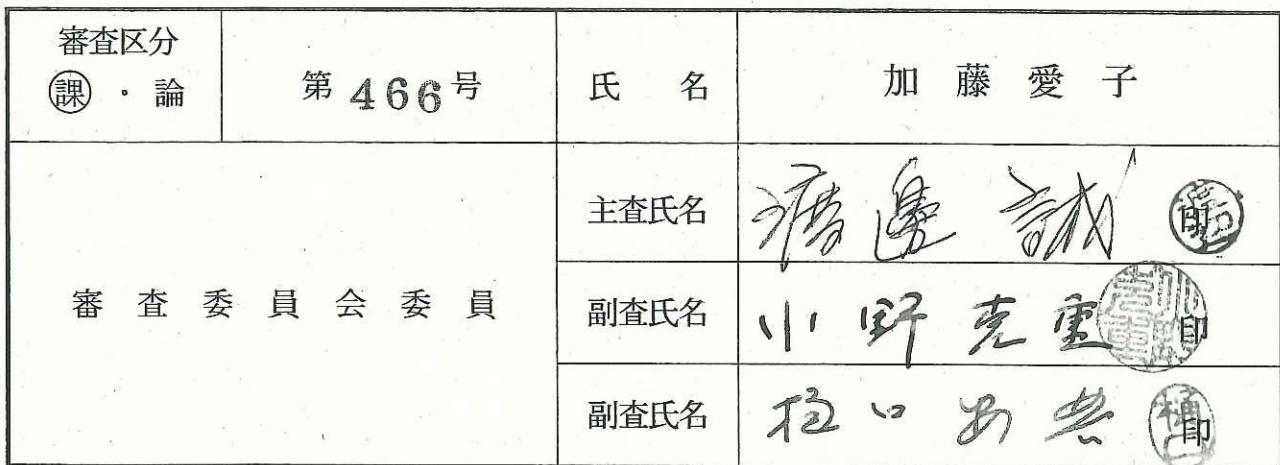 審査区分
課・論
第466号
氏 名
加 藤 愛 子
審 査 委 員 会 委 員
主査氏名
渡邊 誠 印
副査氏名
小野克重 印
副査氏名
樋口 印